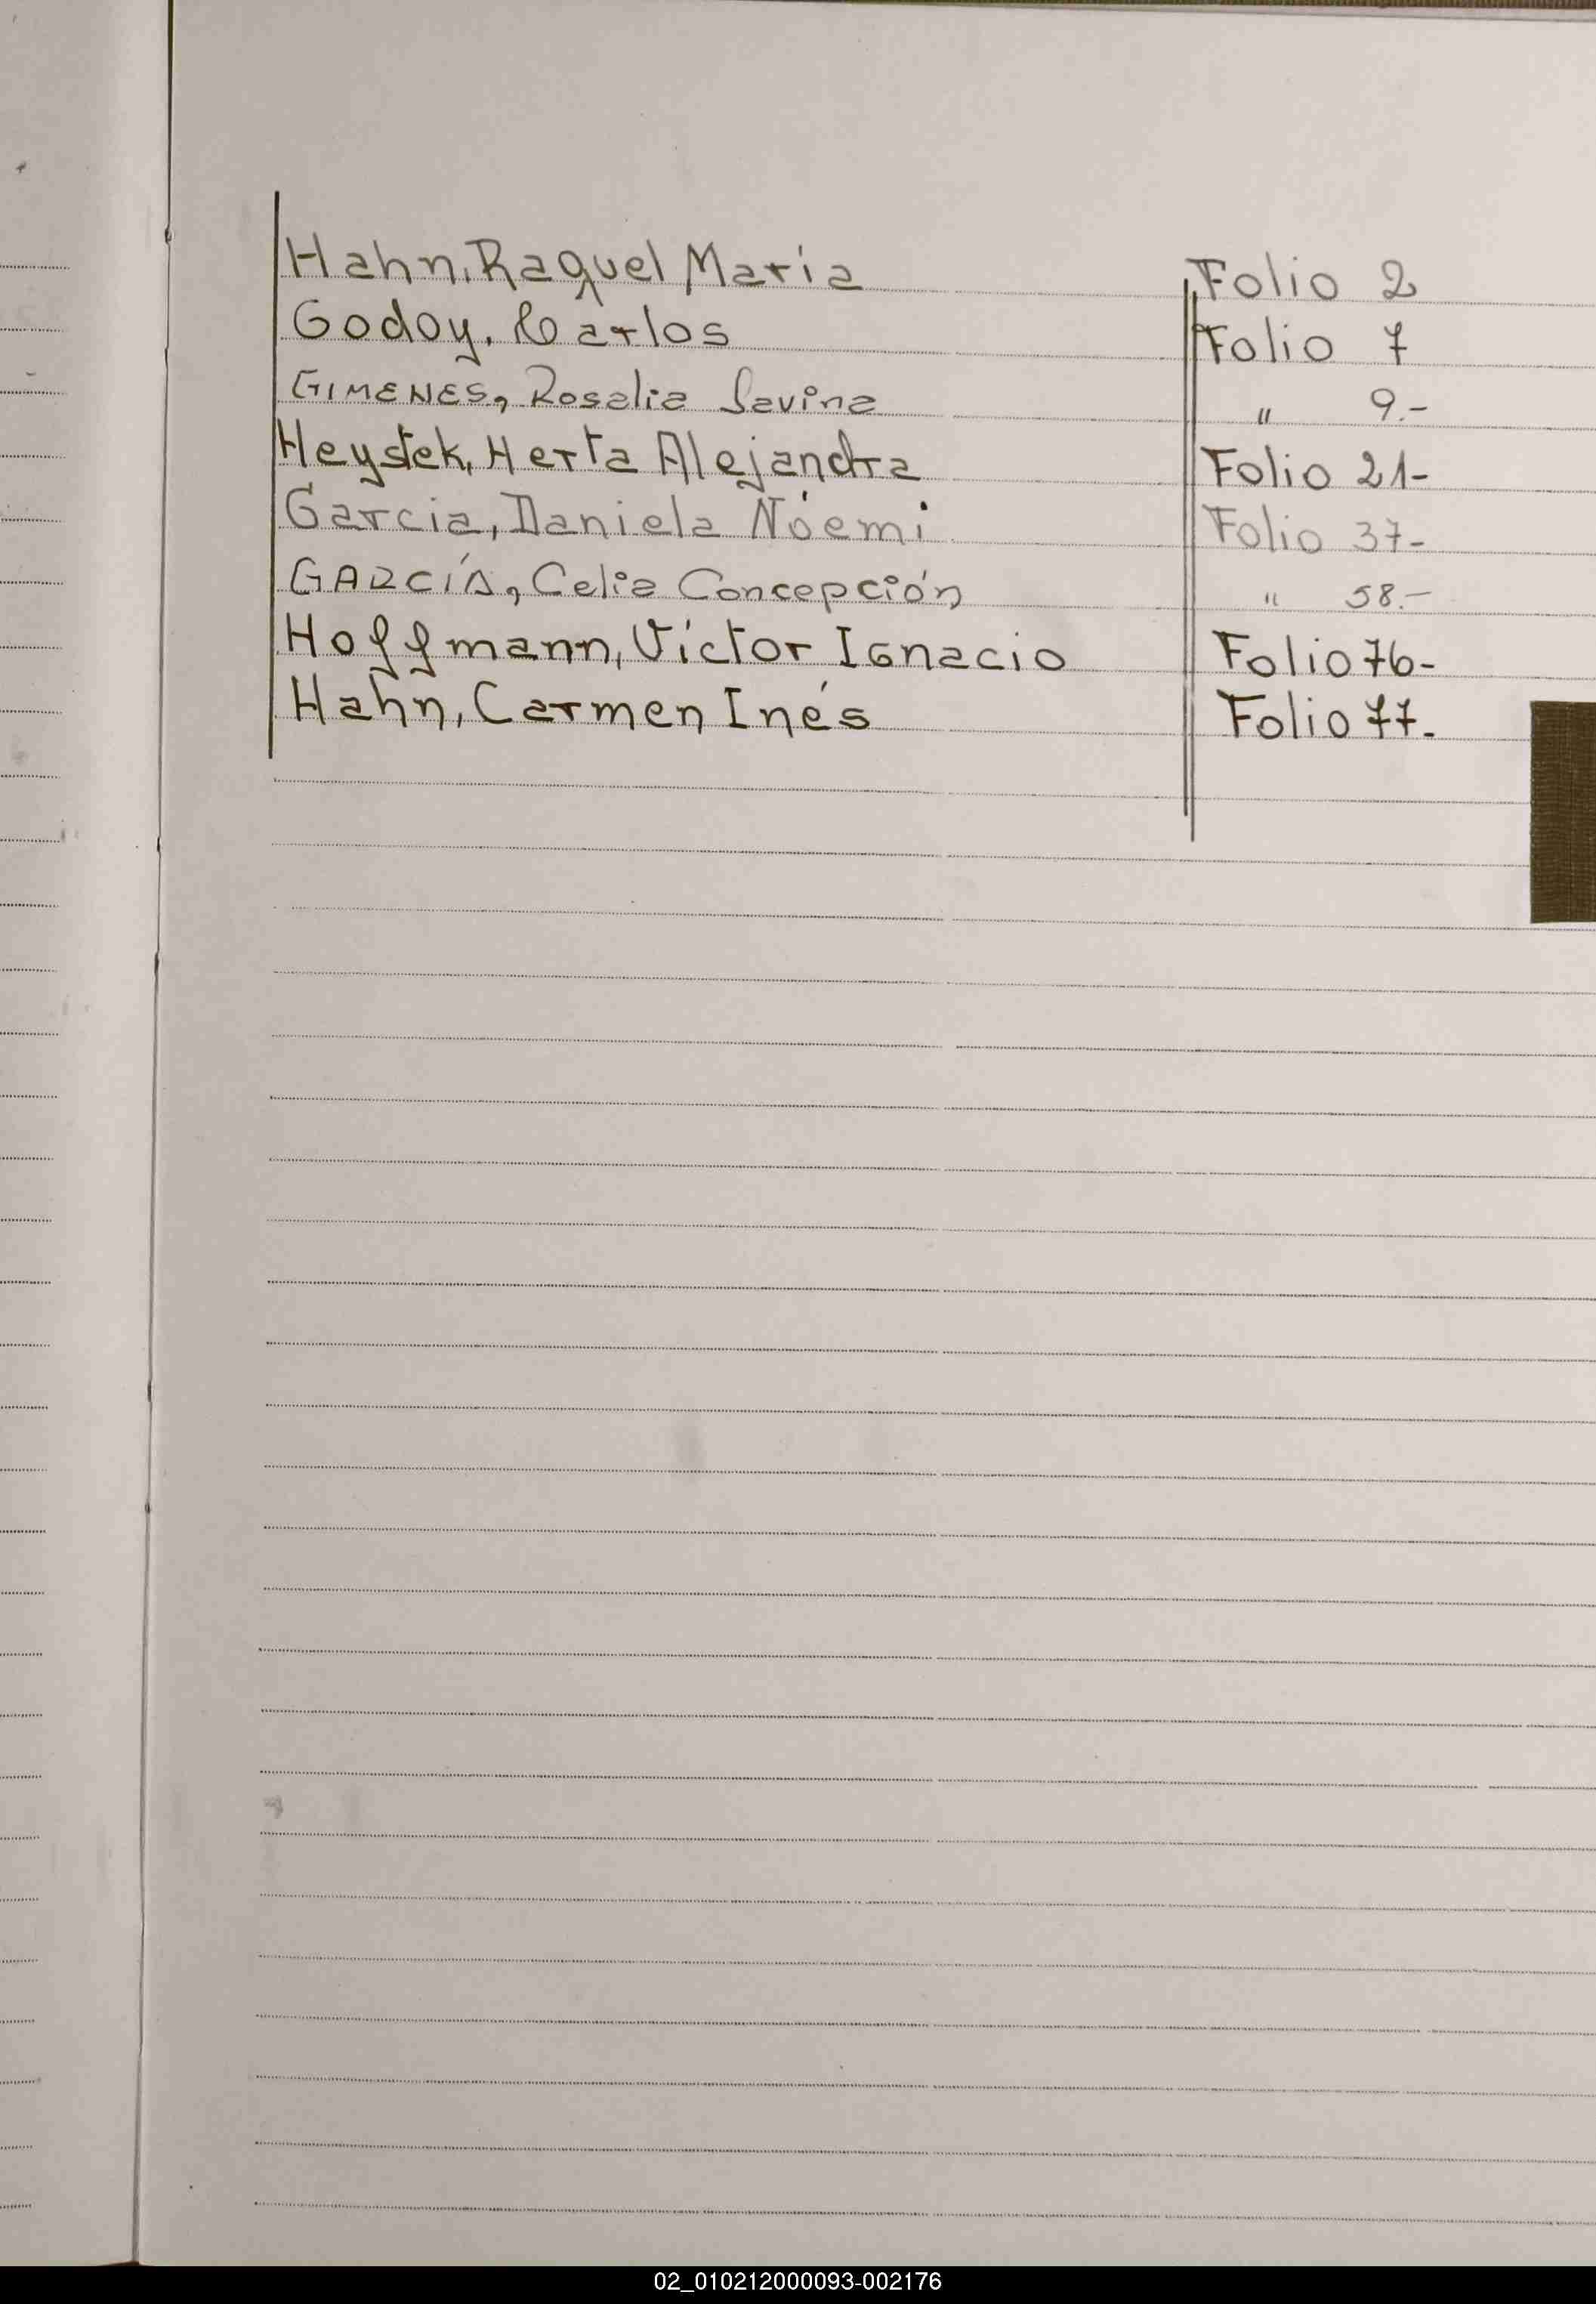 Hahn, Raquel Maria Folio 2
Godoy, Carlos Folio 7
GIMENES, Rosalia Savina " 9.-
Heystek, Herta Alejandra Folio 21-
Garcia, Daniela Nóemi Folio 37-
GARCÍA, Celia Concepción " 58.-
Hoffmann, Victor Ignacio Folio 76-
Hahn, Carmen Inés Folio 77-
02_010212000093-002176